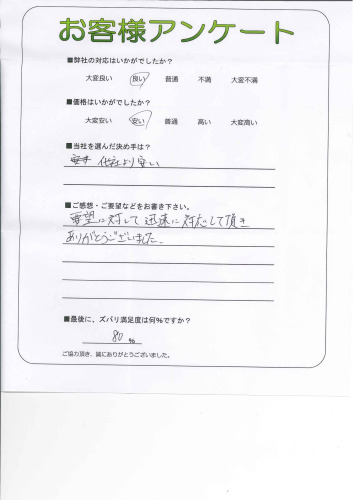 お客様アンケート
■弊社の対応はいかがでしたか?
大変良い 良い 普通 不満 大変不満
■価格はいかがでしたか?
大変安い 安い 普通 高い 大変高い
■当社を選んだ決め手は?
他社より安い
■ご感想・ご要望などをお書き下さい。
要望に対して迅速に対応して頂き
ありがとうございました。
■最後に、ズバリ満足度は何%ですか?
80 %
ご協力頂き、誠にありがとうございました。